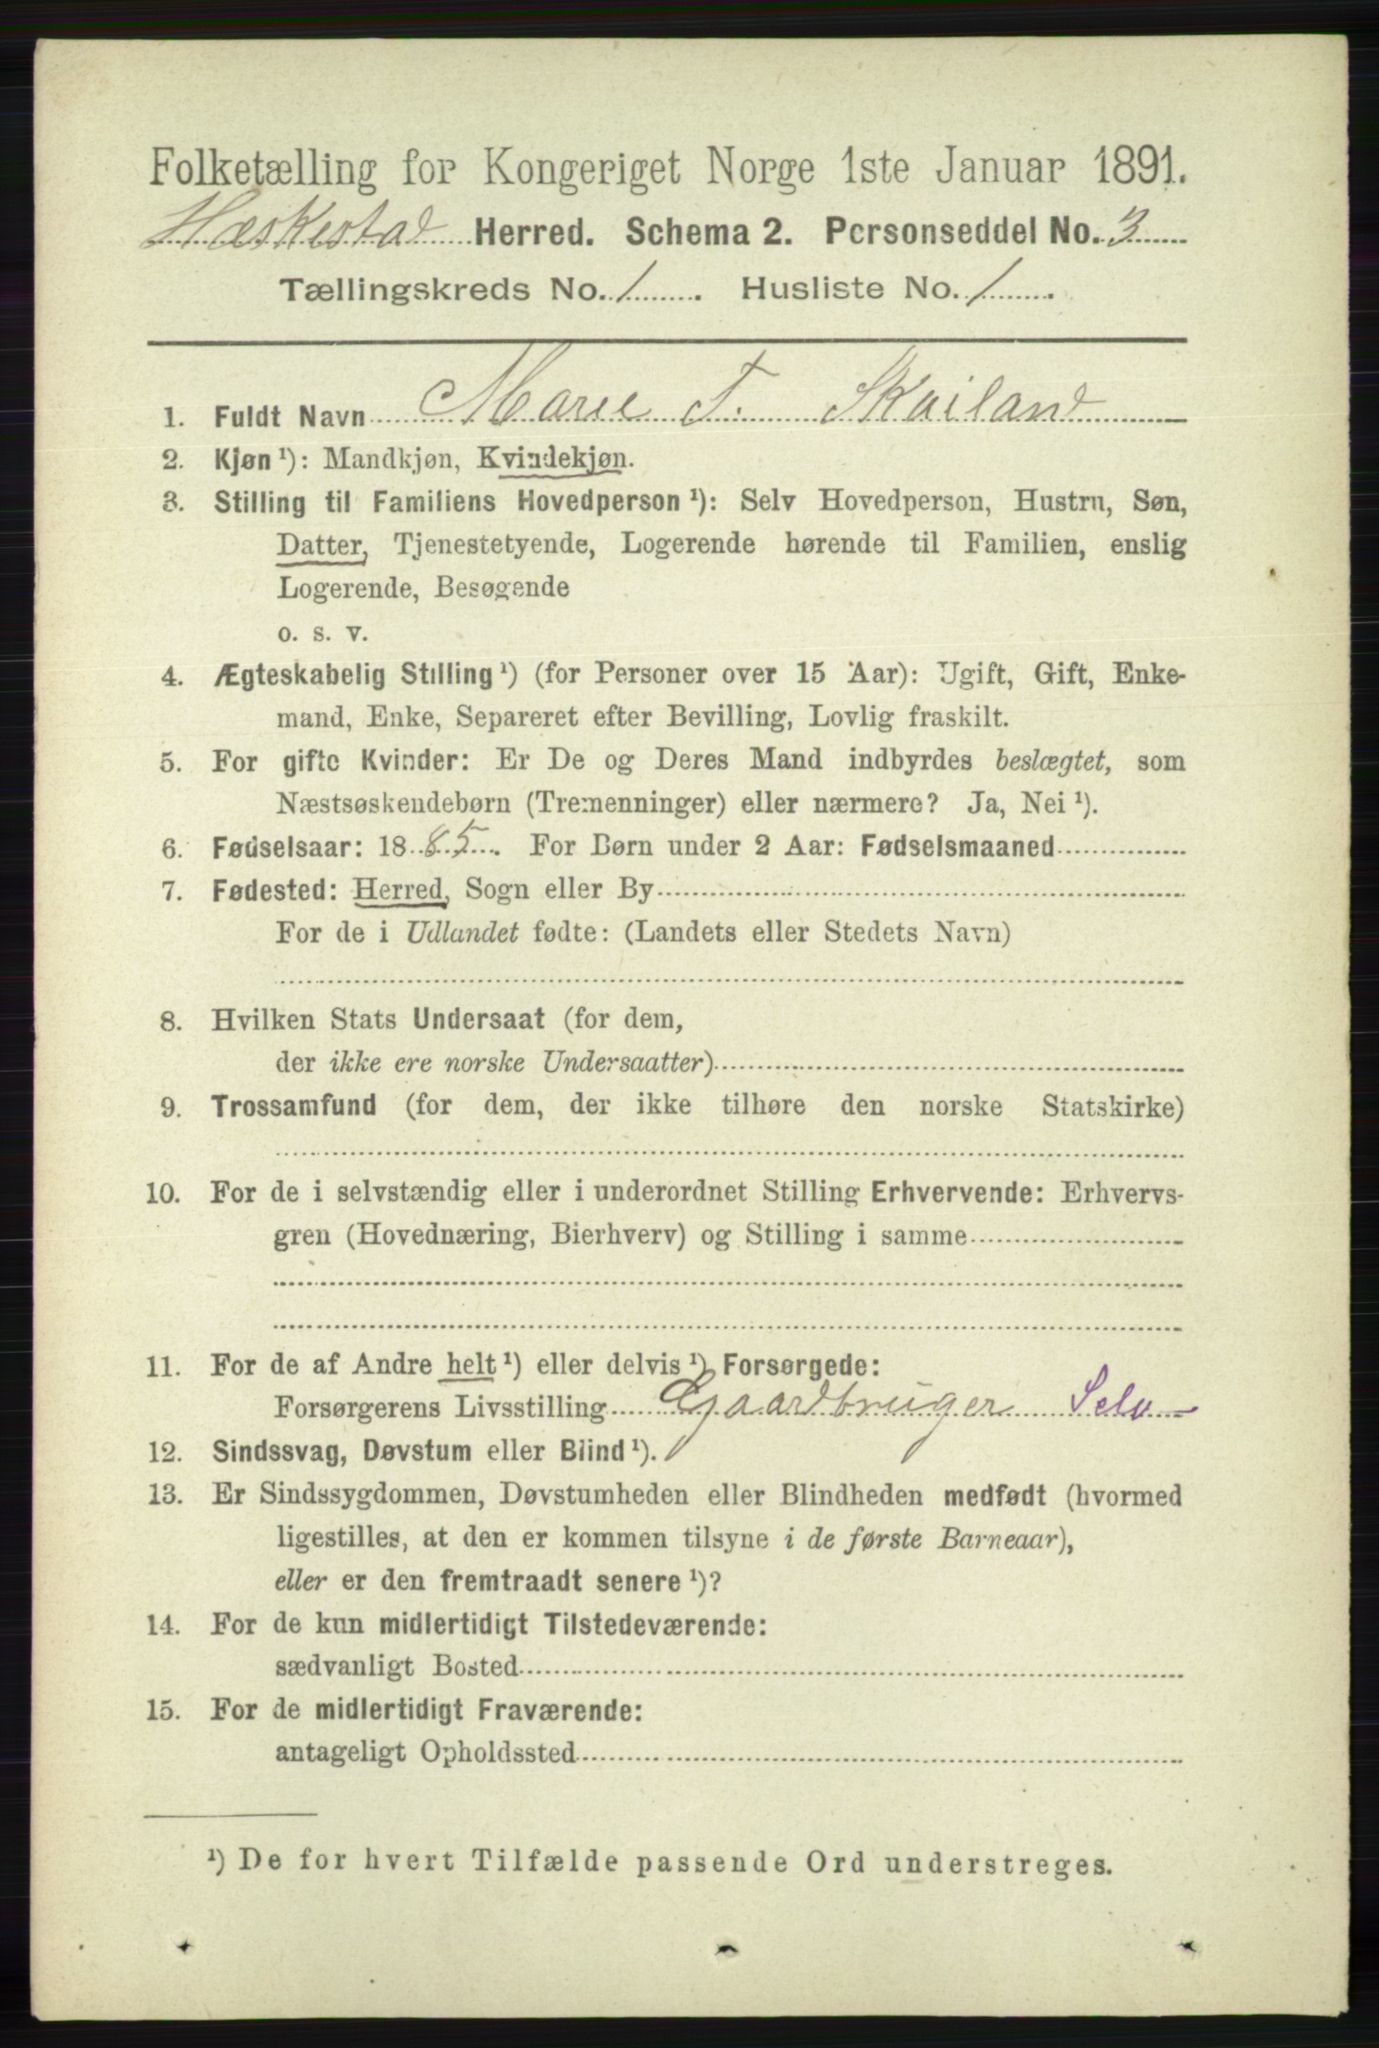 Folketælling for Kongeriget Norge 1ste Januar 1891.
Hæskestad Herred. Schema 2. Personseddel No. 3
Tællingskreds No. 1. Husliste No. 1.
1. Fuldt Navn Marie T. Skailand
2. Kjøn ¹): Mandkjøn, Kvindekjøn.
3. Stilling til Familiens Hovedperson ¹): Selv Hovedperson, Hustru, Søn,
Datter, Tjenestetyende, Logerende hørende til Familien, enslig
Logerende, Besøgende
o. s. v.
4. Ægteskabelig Stilling ¹) (for Personer over 15 Aar): Ugift, Gift, Enke-
mand, Enke, Separeret efter Bevilling, Lovlig fraskilt.
5. For gifte Kvinder: Er De og Deres Mand indbyrdes beslægtet, som
Næstsøskendebørn (Tremenninger) eller nærmere? Ja, Nei ¹).
6. Fødselsaar: 1885. For Børn under 2 Aar: Fødselsmaaned
7. Fødested: Herred, Sogn eller By
For de i Udlandet fødte: (Landets eller Stedets Navn)
8. Hvilken Stats Undersaat (for dem,
der ikke ere norske Undersaatter)
9. Trossamfund (for dem, der ikke tilhøre den norske Statskirke)
10. For de i selvstændig eller i underordnet Stilling Erhvervende: Erhvervs-
gren (Hovednæring, Bierhverv) og Stilling i samme
11. For de af Andre helt ¹) eller delvis ¹) Forsørgede:
Forsørgerens Livsstilling Gaardbruger Selv
12. Sindssvag, Døvstum eller Blind ¹).
13. Er Sindssygdommen, Døvstumheden eller Blindheden medfødt (hvormed
ligestilles, at den er kommen tilsyne i de første Barneaar),
eller er den fremtraadt senere ¹)?
14. For de kun midlertidigt Tilstedeværende:
sædvanligt Bosted
15. For de midlertidigt Fraværende:
antageligt Opholdssted
¹) De for hvert Tilfælde passende Ord understreges.